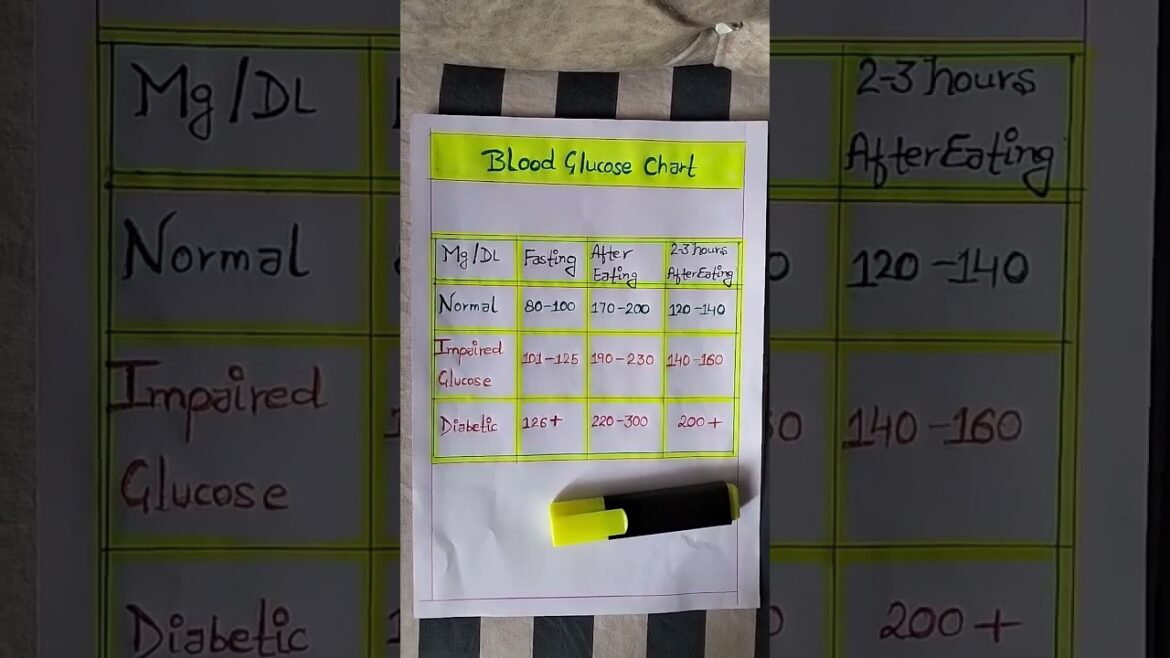 Blood Glucose Chart
Mg/DL Fasting After Eating 2-3 hours After Eating
Normal 80-100 170-200 120-140
Impaired Glucose 101-125 190-230 140-160
Diabetic 126+ 220-300 200+
Mg/DL
Normal
Impaired
Glucose
Diabetic
2-3 hours
After Eating
120-140
140-160
200+